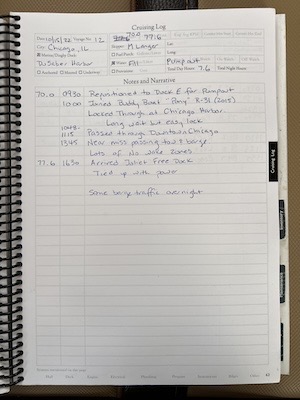 Cruising Log
Date 10/15/22 Voyage No. 12
70.0 77.6
City: Chicago, IL
Skipper: M Langer Lat:
Marina/Dinghy Dock
Water: Fill Pumpout
DuSable Harbor
Total Day Hours: 7.6 Total Night Hours:
Anchored Moored Underway
Provisions
Notes and Narrative
70.0 0930 Repositioned to Dock E for Pumpout
1000 Joined Buddy Boat "Pony" R-31 (2015)
Locked Through at Chicago Harbor
Long wait but easy lock
1115 Passed through Downtown Chicago
1345 Near miss passing tow & barge
Lots of No Wake Zones
77.6 1630 Arrived Joliet Free Dock
Tied up with power
Some barge traffic overnight